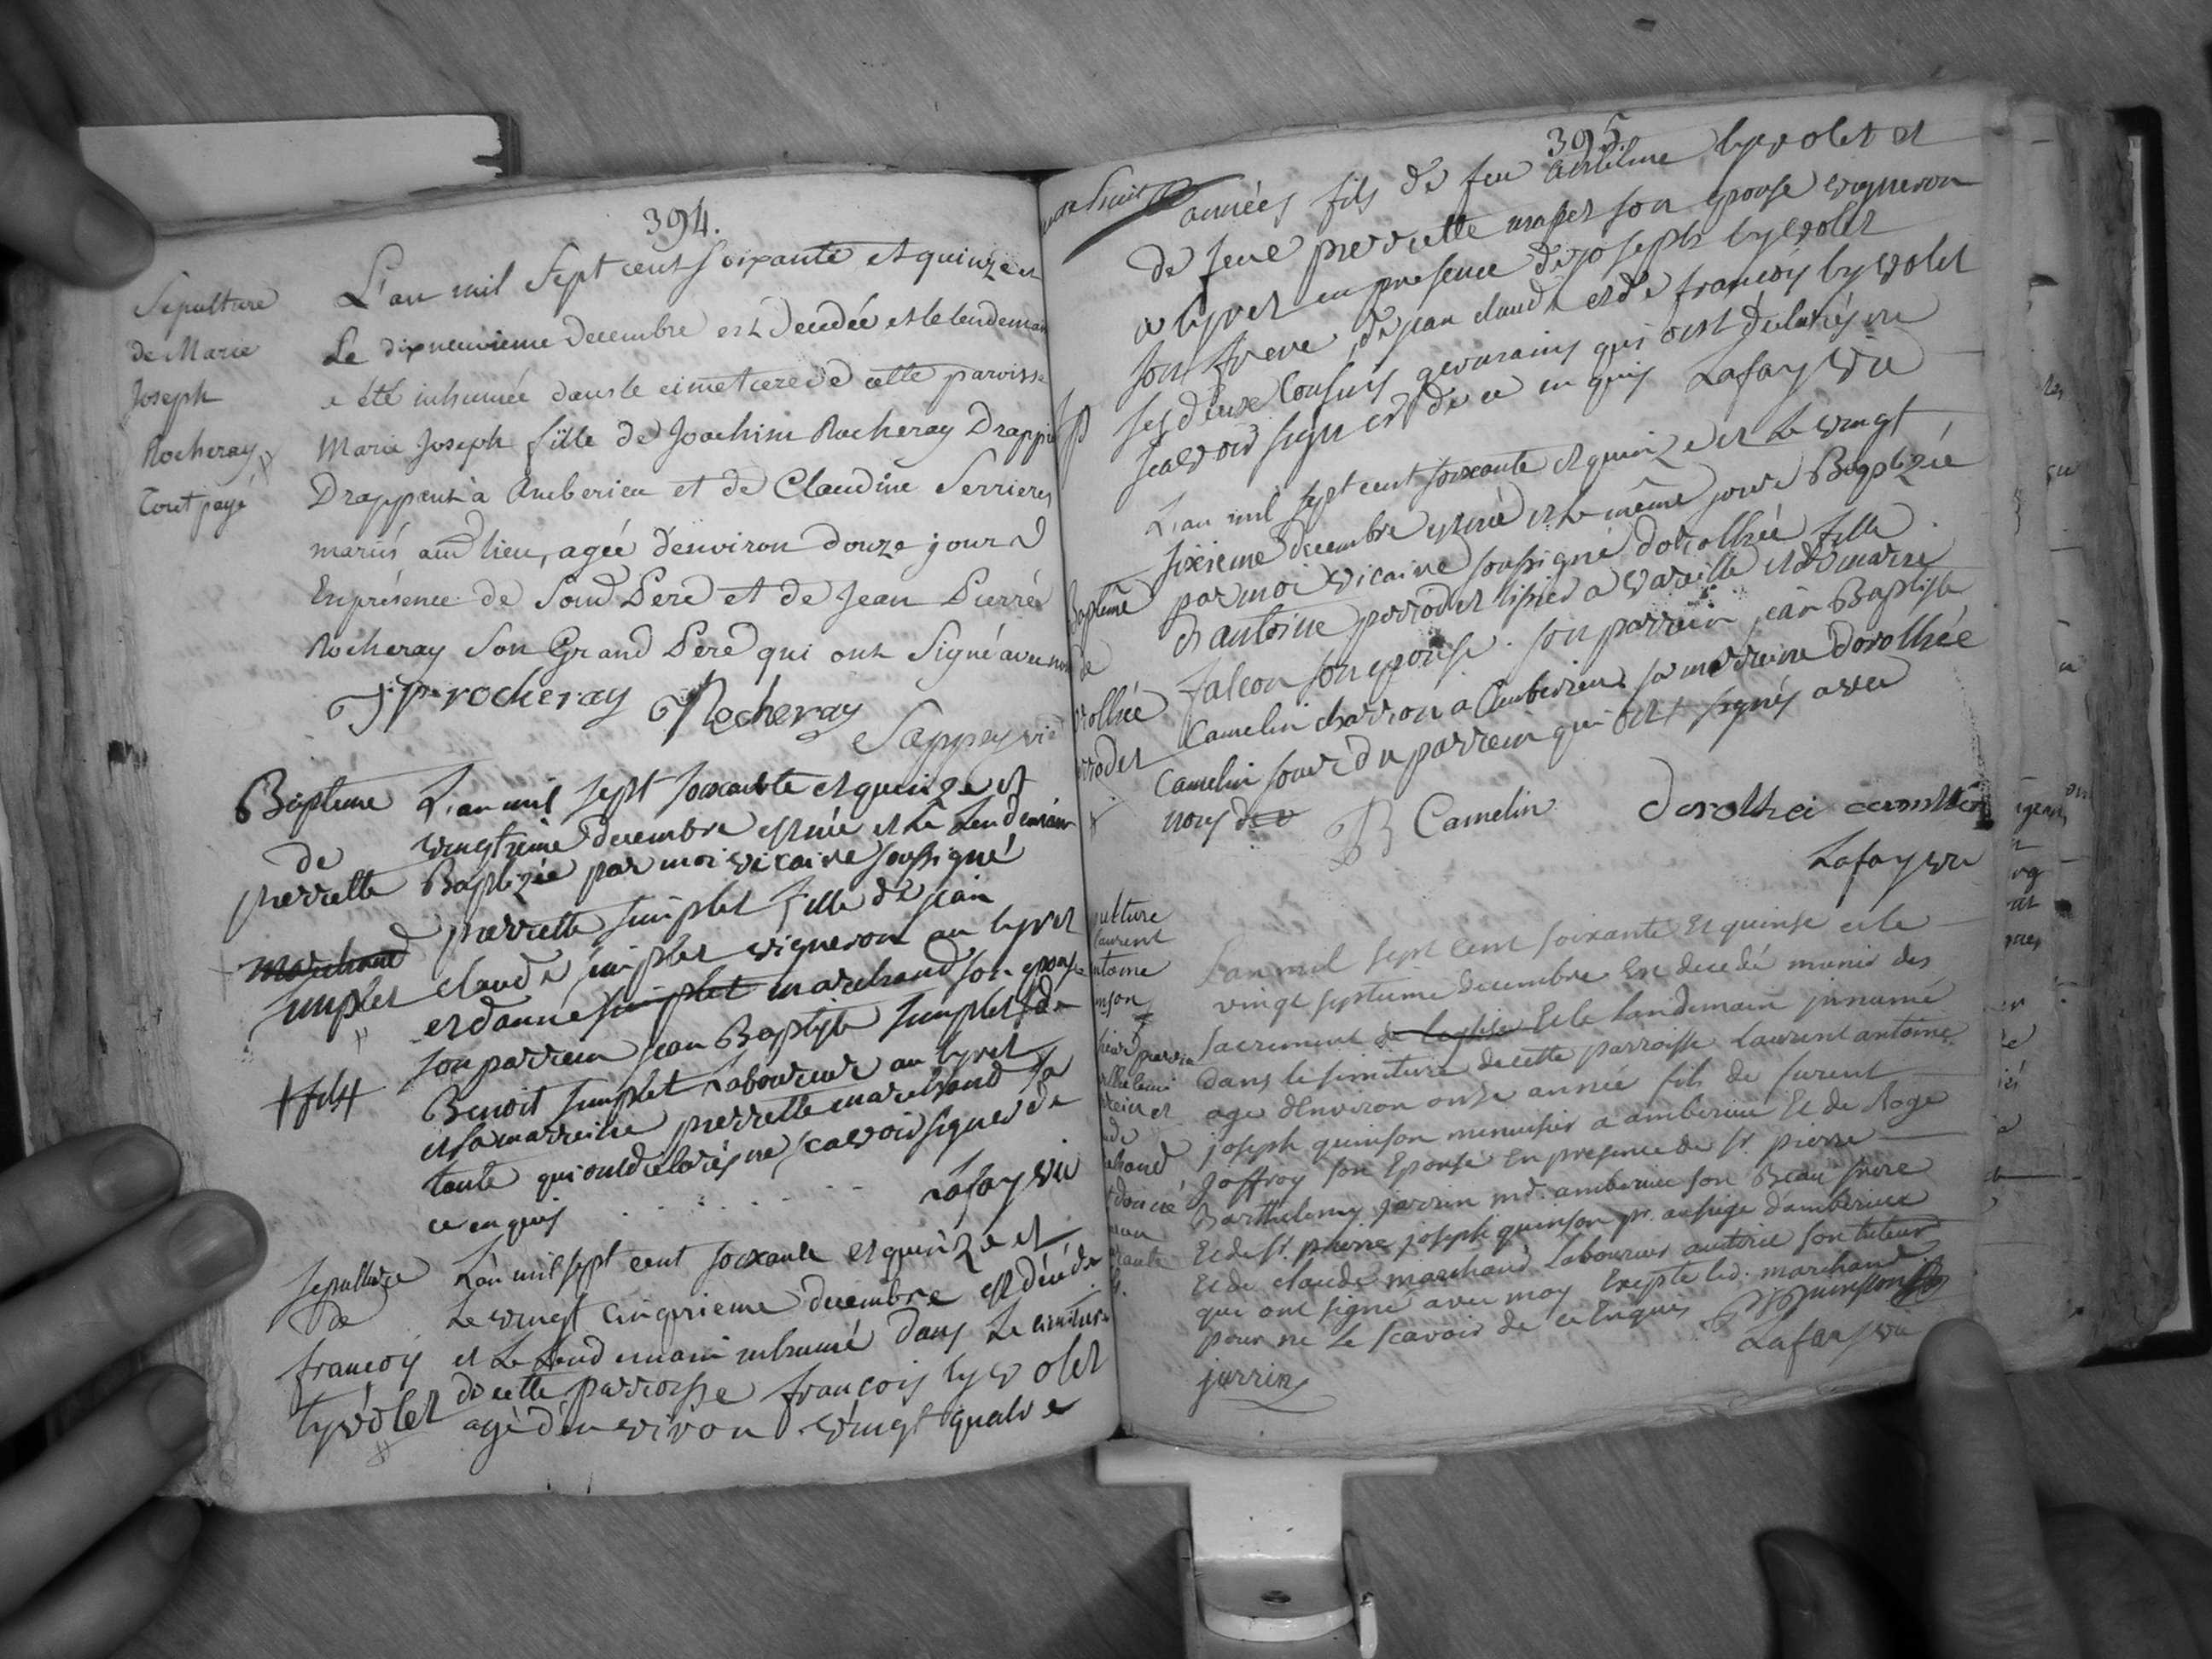 394.
Sepulture
de Marie
Joseph
Rocheray
Tout payé
L'an mil Sept cent soixante et quinze et
Le dixneuvieme Decembre est Decedée et le lendemain
a été inhumée dans le cimetiere de cette paroisse
Marie Joseph fille de Joachim Rocheray Drappier
Drappant à Amberieu et de Claudine Serrieres
mariés aud lieu, agée d'environ douze jours
En présence de Soud Pere et de Jean Pierre
Rocheray Son Grand Pere qui ont Signé avec nous
JP rocheray Rocheray
Sappey vic
Bapteme
de
pierrette
marchand
simplet
L'an mil sept soixante et quinze et
vingtieme decembre est née et Le Lendemain
Baptizée par moi vicaire soussigné
pierrette simplet fille de jean
claude simplet vigneron au tyret
et d'anne simplet marchand son epouse
son parrein jean Baptiste simplet de
+fils+
Benoit simplet Laboureur au tyret
et sa marreine pierrette marchand sa
tante qui ont declarés ne scavoir signer de
ce enquis Lafay vic
sepulture
de
francois
tyvolet
L'an mil sept cent soixante et quinze et
Le vingt cinquieme decembre est décédé
et Le Lendemain inhumé dans Le cimitiere
de cette parroisse francois tyvolet
agé d'environ vingt quatre
395.
années fils de feu anthelme tyvolet et
de feue pierrette son epouse vigneron
a tyret en presence de joseph tyvolet
son frere, de jean claude et de francois tyvolet
ses deux cousins germains qui ont déclarés ne
scavoir signer de ce enquis Lafay vic
Baptême
de
rothée
rrodet
L'an mil sept cent soixante et quinze et Le vingt
sixieme decembre est née et le même jour Baptizée
par moi vicaire soussigné dorothée fille
d'antoine perrodet tisier a vareille et de marie
falcon son epouse. son parrein jean Baptiste
Camelin charron a Amberieu sa marreine dorothée
Camelin soeur du parrein qui ont signés avec
nous de v
B Camelin dorothei camelin
Lafay vic
pulture
laurent
ntoine
nson
L'an mil sept cent soixante Et quinse et le
vingt septieme decembre Est decedé munis des
sacrement de leglise Et le landemain innumé
dans le simitiere de cette parroisse laurent antoine
age d'Environ onse année fils de furent
joseph quinson menuisier a amberieu Et de Roze
Joffroy son Epouse En presence de Sr. pierre
Barthelemy jarrin md. amberieu son Beau frere
Et de Sr. pierre joseph quinson pr. au siege d'amberieux
Et de claude marchand Laboureur autorie son tuteur
que ont signé avec moy Exepte led. marchand
pour ne le scavoir de ce Enquis PJ Quinson
Lafay vic
jarrin